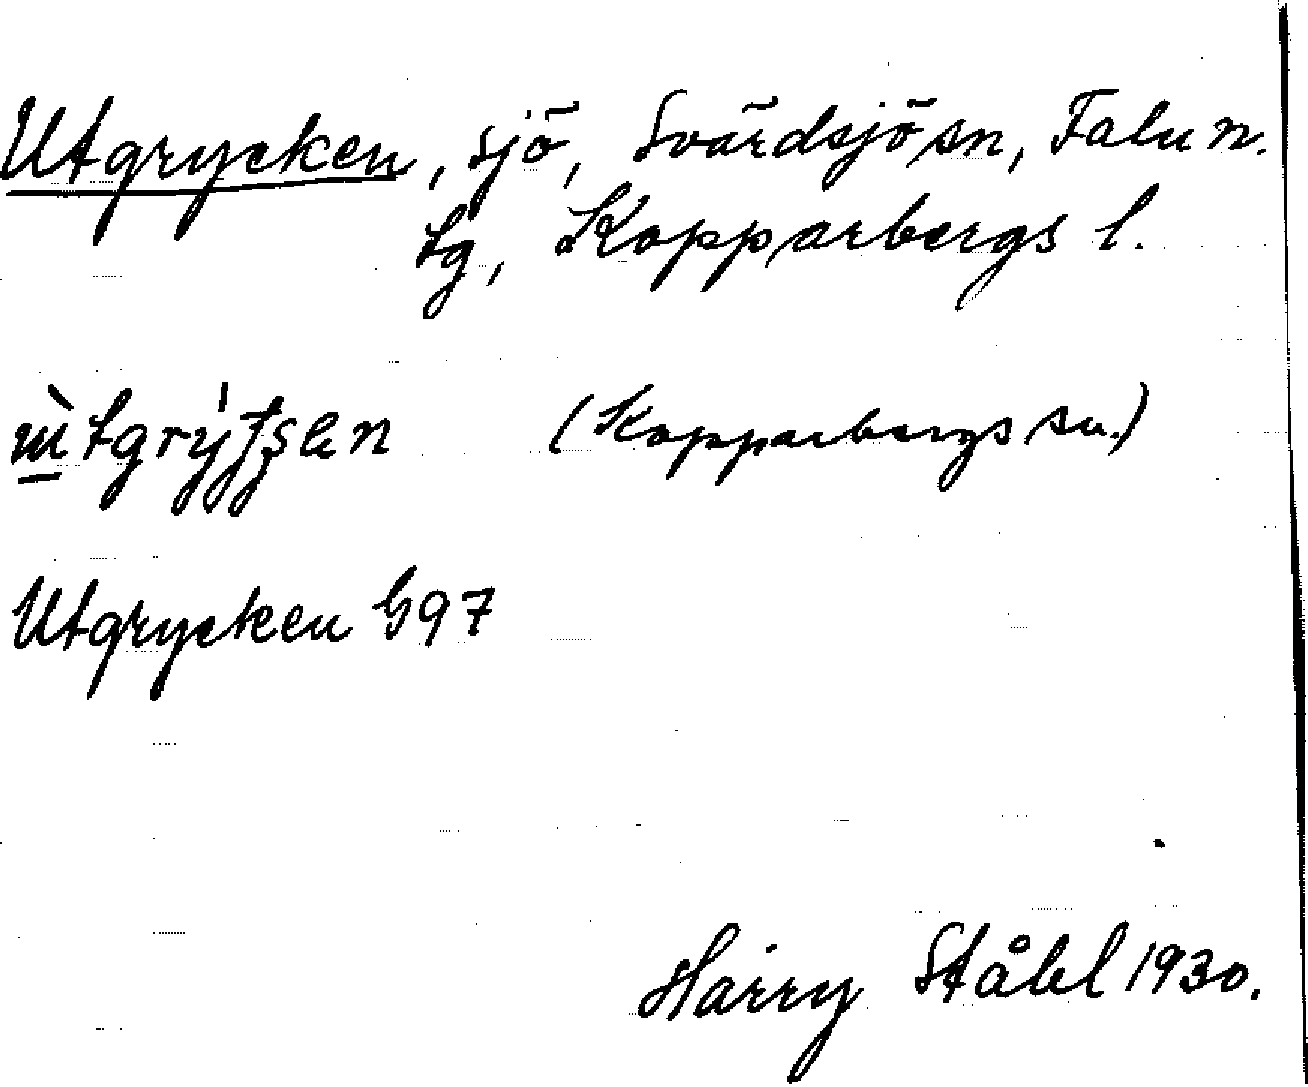 Utgrycken, sjö, Svärdsjö sn, Falu n.
tg, Kopparbergs l.
(Kopparbergs sn.)
Utgrycken G97
Harry Ståhl 1930.